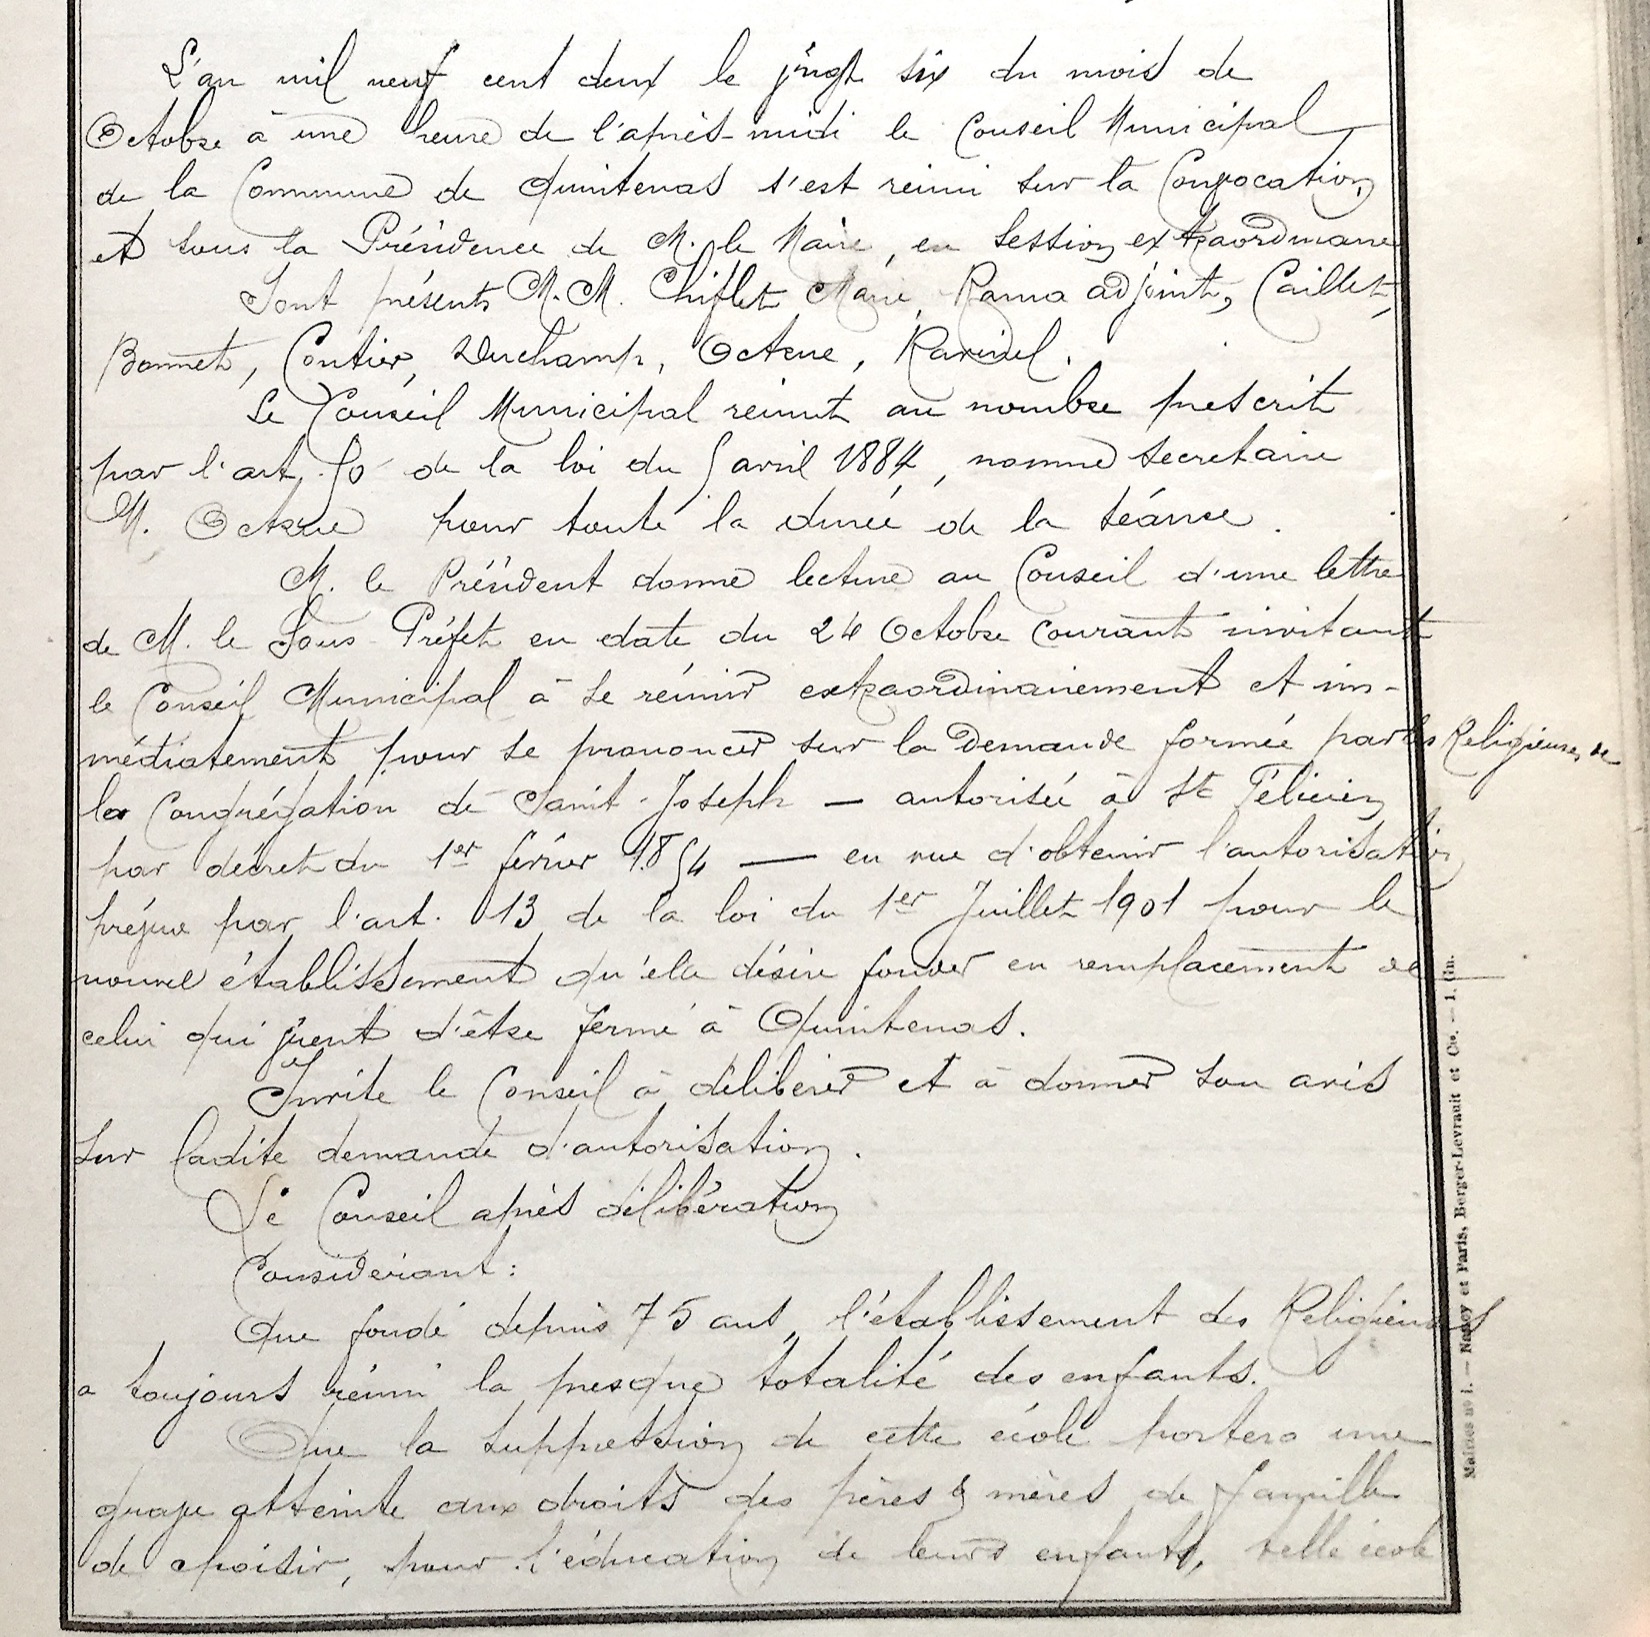 L'an mil neuf cent deux le vingt six du mois de
Octobre à une heure de l'après-midi le Conseil Municipal
de la Commune de Quintenas s'est réuni sur la Convocation
et sous la Présidence de M. le Maire, en Session extraordinaire
Sont présents M.M. Chiflet Maire, Ranna adjoint, Caillet,
Bonnet, Contier, Duchamp, Octrue, Ravinel.
Le Conseil Municipal réunit au nombre prescrit
par l'art. 50 de la loi du 5 avril 1884, nomme secretaire
M. Octrue pour toute la durée de la séance.
M. le Président donne lecture au Conseil d'une lettre
de M. le Sous-Préfet en date du 24 Octobre courant invitant
le Conseil Municipal à se réunir extraordinairement et im-
médiatement pour se prononcer sur la Demande formée par les Religieuses de
la Congrégation de Saint-Joseph — autorisée à St Félicien
par décret du 1er février 1854 — en vue d'obtenir l'autorisation
prévue par l'art. 13 de la loi du 1er Juillet 1901 pour le
nouvel établissement qu'elle désire fonder en remplacement de
celui qui vient d'être fermé à Quintenas.
Invite le Conseil à délibérer et à donner son avis
sur ladite demande d'autorisation.
Le Conseil après délibération
Considérant :
Que fondé depuis 75 ans, l'établissement des Religieuses
a toujours réuni la presque totalité des enfants.
Que la suppression de cette école portera une
grave atteinte aux droits des pères & mères de famille
de choisir, pour l'éducation de leurs enfants, telle école
Mairies nº 1. — Nancy et Paris, Berger-Levrault et Cie. — 1. Gn.